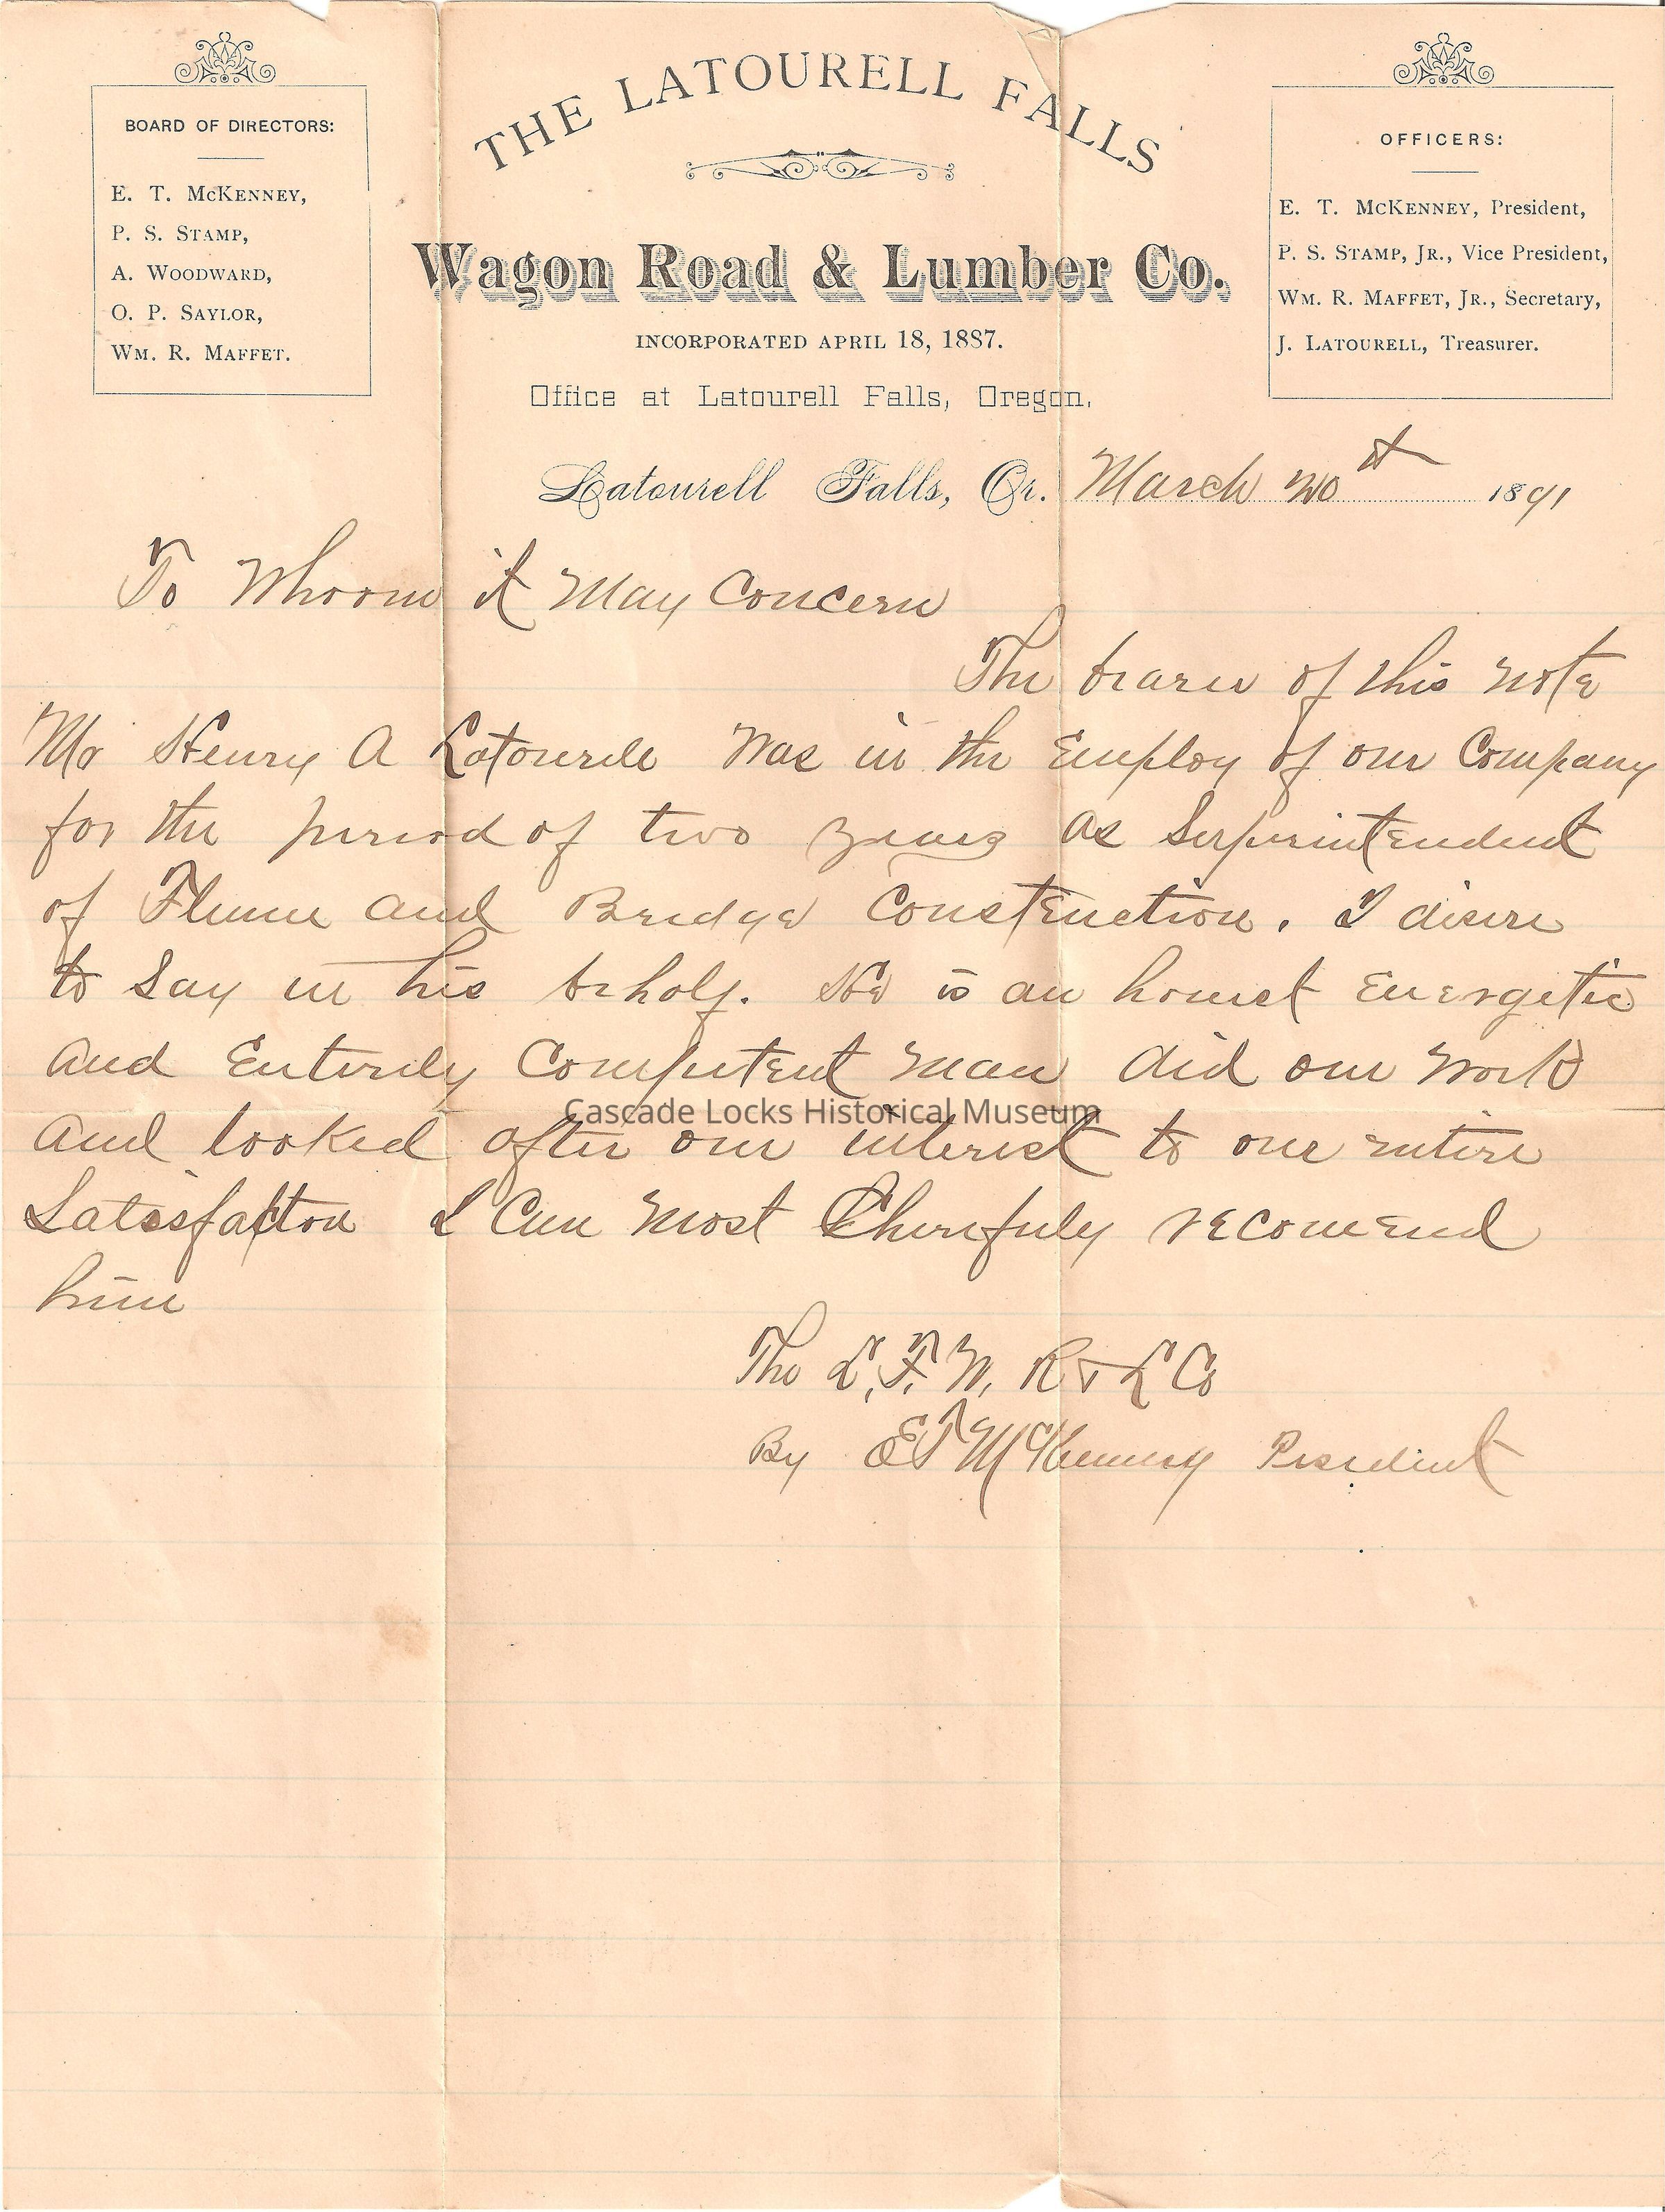 BOARD OF DIRECTORS:
E. T. McKENNEY,
P. S. STAMP,
A. WOODWARD,
O. P. SAYLOR,
WM. R. MAFFET.
THE LATOURELL FALLS
Wagon Road & Lumber Co.
INCORPORATED APRIL 18, 1887.
Office at Latourell Falls, Oregon,
OFFICERS:
E. T. McKENNEY, President,
P. S. STAMP, JR., Vice President,
WM. R. MAFFET, JR., Secretary,
J. LATOURELL, Treasurer.
Latourell Falls, Or. March 20th 1891
To Whoom it May Concern
The bearer of this note
Mr Henry A Latourell Was in the Employ of our Company
for the period of two years as Serperintendent
of Flume and Bridge Construction. I disire
to Say in his behalf. He is an honest Energetic
and Entirely Competent man did our work
and looked after our interest to our entire
Satisfaction I Can most Cheerfuly recomend
him
The L. F. W. R & L Co
By E T McKenney President
Cascade Locks Historical Museum